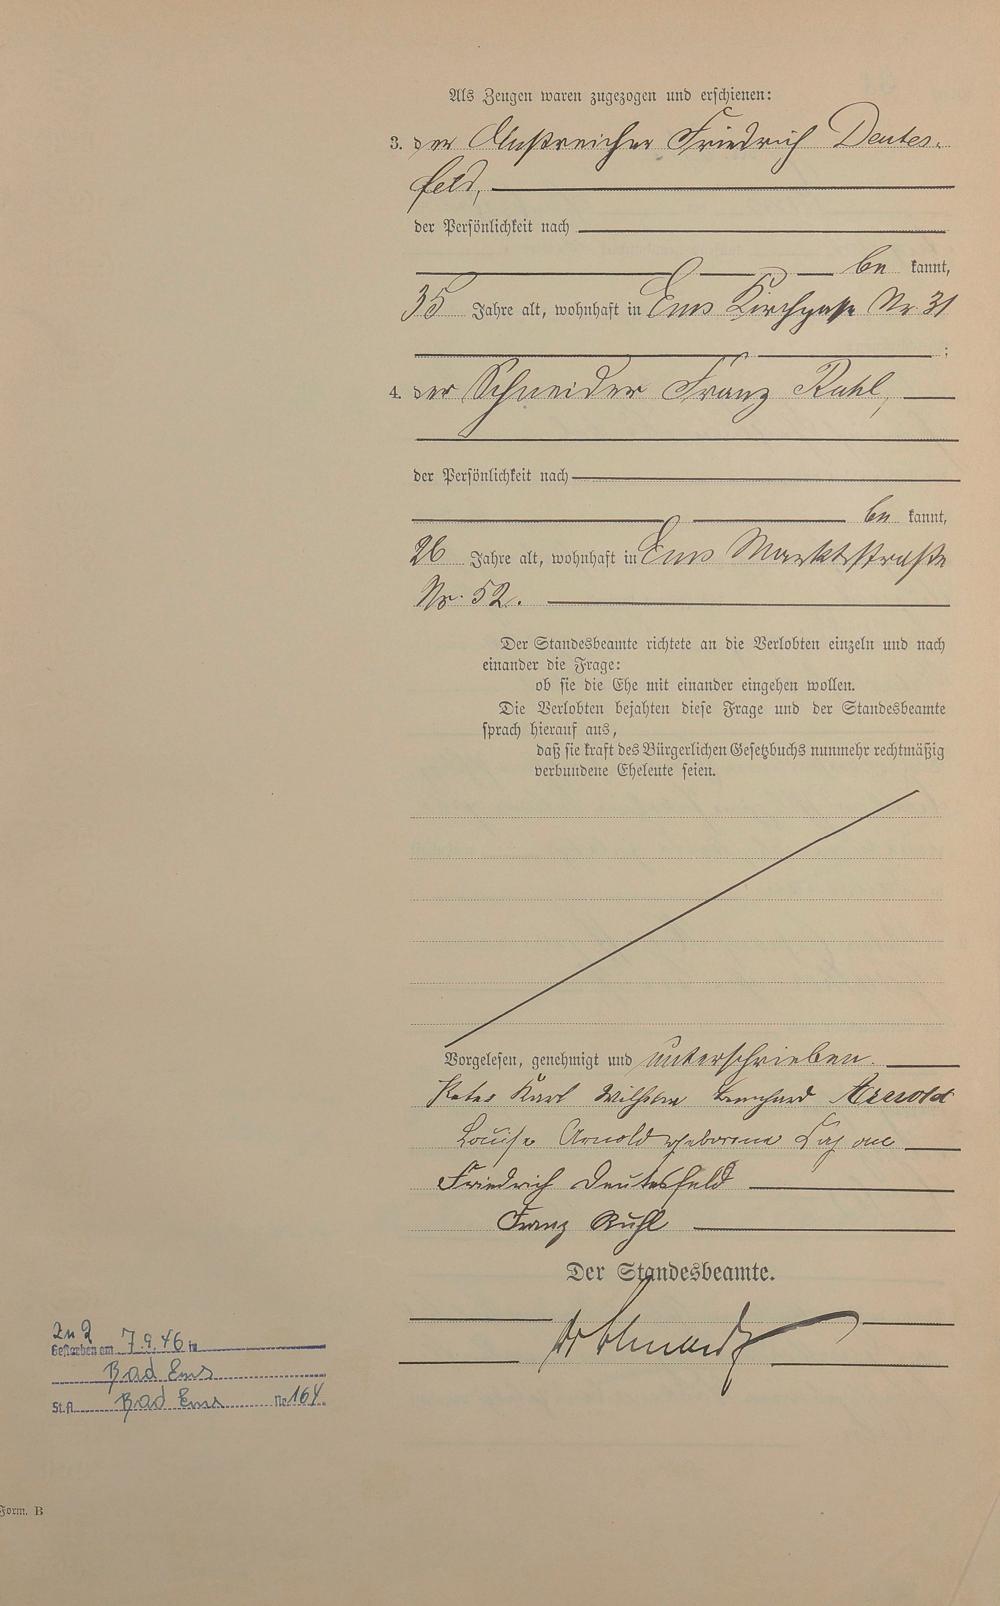 Als Zeugen waren zugezogen und erschienen:
3. der Anstreicher Friedrich Deutes-
feld,
der Persönlichkeit nach
be kannt,
35 Jahre alt, wohnhaft in Ems Kirchgasse Nr 31
;
4. der Schneider Franz Ruhl,
der Persönlichkeit nach
be kannt,
26 Jahre alt, wohnhaft in Ems Marktstraße
Nr. 52.
Der Standesbeamte richtete an die Verlobten einzeln und nach
einander die Frage:
ob sie die Ehe mit einander eingehen wollen.
Die Verlobten bejahten diese Frage und der Standesbeamte
sprach hierauf aus,
daß sie kraft des Bürgerlichen Gesetzbuchs nunmehr rechtmäßig
verbundene Eheleute seien.
Vorgelesen, genehmigt und unterschrieben.
Peter Karl Wilhelm Bernhard Arnold
Louise Arnold geborene
Friedrich Deutesfeld
Franz Ruhl
Der Standesbeamte.
Zu 2
Gestorben am 7.9.46 in
Bad Ems
St.A. Bad Ems Nr. 164.
Form. B